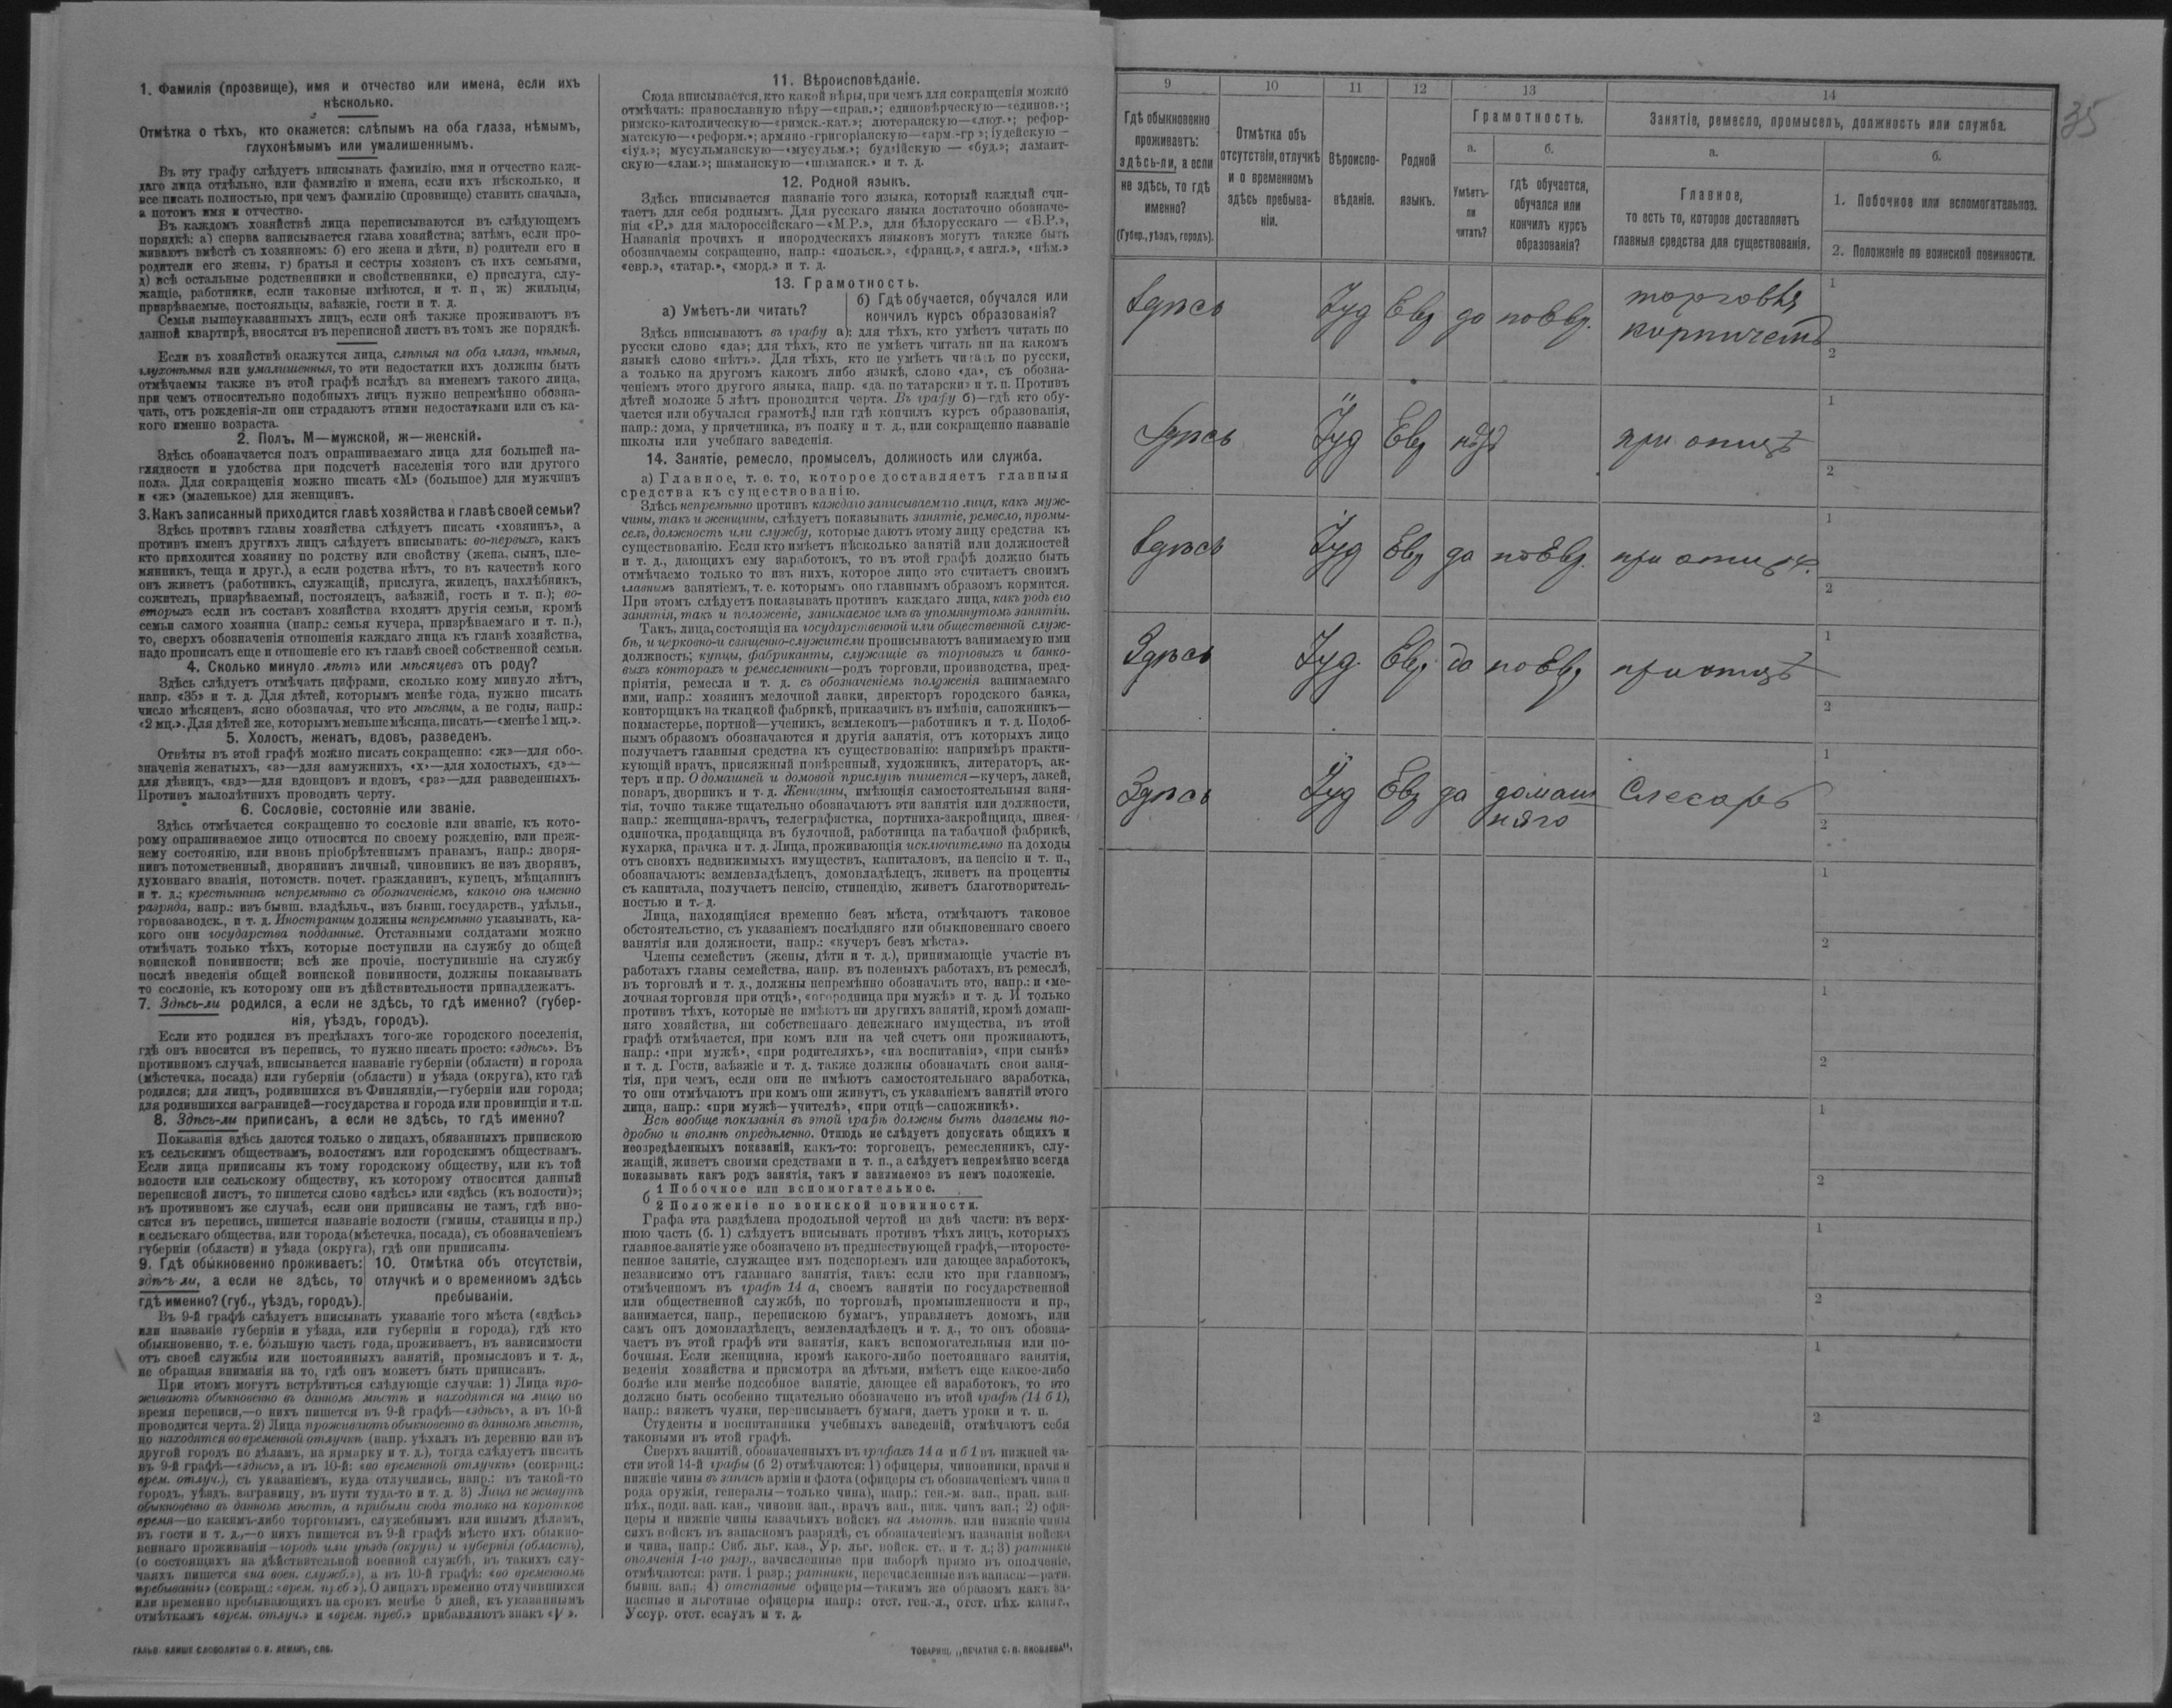 1. Фамилія (прозвище), имя и отчество или имена, если ихъ
нѣсколько.
Отмѣтка о тѣхъ, кто окажется: слѣпымъ на оба глаза, нѣмымъ,
глухонѣмымъ или умалишеннымъ.
Въ эту графу слѣдуетъ вписывать фамилію, имя и отчество каж-
даго лица отдѣльно, или фамилію и имена, если ихъ нѣсколько, и
все писать полностью, при чемъ фамилію (прозвище) ставить сначала,
а потомъ имя и отчество.
Въ каждомъ хозяйствѣ лица переписываются въ слѣдующемъ
порядкѣ: а) сперва записывается глава хозяйства; затѣмъ, если про-
живаютъ вмѣстѣ съ хозяиномъ: б) его жена и дѣти, в) родители его и
родители его жены, г) братья и сестры хозяевъ съ ихъ семьями,
д) всѣ остальные родственники и свойственники, е) прислуга, слу-
жащіе, работники, если таковые имѣются, и т. п, ж) жильцы,
призрѣваемые, постояльцы, заѣзжіе, гости и т. д.
Семьи вышеуказанныхъ лицъ, если онѣ также проживаютъ въ
данной квартирѣ, вносятся въ переписной листъ въ томъ же порядкѣ.
Если въ хозяйствѣ окажутся лица, слѣпыя на оба глаза, нѣмыя,
глухонѣмыя или умалишенныя, то эти недостатки ихъ должны быть
отмѣчаемы также въ этой графѣ вслѣдъ за именемъ такого лица,
при чемъ относительно подобныхъ лицъ нужно непремѣнно обозна-
чать, отъ рожденія-ли они страдаютъ этими недостатками или съ ка-
кого именно возраста.
2. Полъ. М—мужской, ж—женскій.
Здѣсь обозначается полъ опрашиваемаго лица для большей на-
глядности и удобства при подсчетѣ населенія того или другого
пола. Для сокращенія можно писать «М» (большое) для мужчинъ
и «ж» (маленькое) для женщинъ.
3. Какъ записанный приходится главѣ хозяйства и главѣ своей семьи?
Здѣсь противъ главы хозяйства слѣдуетъ писать «хозяинъ», а
противъ именъ другихъ лицъ слѣдуетъ вписывать: во-первыхъ, какъ
кто приходится хозяину по родству или свойству (жена, сынъ, пле-
мянникъ, теща и друг.), а если родства нѣтъ, то въ качествѣ кого
онъ живетъ (работникъ, служащій, прислуга, жилецъ, нахлѣбникъ,
сожитель, призрѣваемый, постоялецъ, заѣзжій, гость и т. п.); во-
вторыхъ если въ составъ хозяйства входятъ другія семьи, кромѣ
семьи самого хозяина (напр.: семья кучера, призрѣваемаго и т. п.),
то, сверхъ обозначенія отношенія каждаго лица къ главѣ хозяйства,
надо прописать еще и отношеніе его къ главѣ своей собственной семьи.
4. Сколько минуло лѣтъ или мѣсяцевъ отъ роду?
Здѣсь слѣдуетъ отмѣчать цифрами, сколько кому минуло лѣтъ,
напр. «35» и т. д. Для дѣтей, которымъ менѣе года, нужно писать
число мѣсяцевъ, ясно обозначая, что это мѣсяцы, а не годы, напр.:
«2 мц.». Для дѣтей же, которымъ меньше мѣсяца, писать—«менѣе 1 мц.».
5. Холостъ, женатъ, вдовъ, разведенъ.
Отвѣты въ этой графѣ можно писать сокращенно: «ж»—для обо-
значенія женатыхъ, «з»—для замужнихъ, «х»—для холостыхъ, «д»—
для дѣвицъ, «вд»—для вдовцовъ и вдовъ, «рз»—для разведенныхъ.
Противъ малолѣтнихъ проводить черту.
6. Сословіе, состояніе или званіе.
Здѣсь отмѣчается сокращенно то сословіе или званіе, къ кото-
рому опрашиваемое лицо относится по своему рожденію, или преж-
нему состоянію, или вновь пріобрѣтеннымъ правамъ, напр.: дворя-
нинъ потомственный, дворянинъ личный, чиновникъ не изъ дворянъ,
духовнаго званія, потомств. почет. гражданинъ, купецъ, мѣщанинъ
и т. д.; крестьянинъ непремѣнно съ обозначеніемъ, какого онъ именно
разряда, напр.: изъ бывш. владѣльч., изъ бывш. государств., удѣльн.,
горнозаводск., и т. д. Иностранцы должны непремѣнно указывать, ка-
кого они государства подданные. Отставными солдатами можно
отмѣчать только тѣхъ, которые поступили на службу до общей
воинской повинности; всѣ же прочіе, поступившіе на службу
послѣ введенія общей воинской повинности, должны показывать
то сословіе, къ которому они въ дѣйствительности принадлежатъ.
7. Здѣсь-ли родился, а если не здѣсь, то гдѣ именно? (губер-
нія, уѣздъ, городъ).
Если кто родился въ предѣлахъ того-же городского поселенія,
гдѣ онъ вносится въ перепись, то нужно писать просто: «здѣсь». Въ
противномъ случаѣ, вписывается названіе губерніи (области) и города
(мѣстечка, посада) или губерніи (области) и уѣзда (округа), кто гдѣ
родился; для лицъ, родившихся въ Финляндіи,—губерніи или города;
для родившихся заграницей—государства и города или провинціи и т.п.
8. Здѣсь-ли приписанъ, а если не здѣсь, то гдѣ именно?
Показанія здѣсь даются только о лицахъ, обязанныхъ припискою
къ сельскимъ обществамъ, волостямъ или городскимъ обществамъ.
Если лица приписаны къ тому городскому обществу, или къ той
волости или сельскому обществу, къ которому относится данный
переписной листъ, то пишется слово «здѣсь» или «здѣсь (къ волости)»;
въ противномъ же случаѣ, если они приписаны не тамъ, гдѣ вно-
сятся въ перепись, пишется названіе волости (гмины, станицы и пр.)
и сельскаго общества, или города (мѣстечка, посада), съ обозначеніемъ
губерніи (области) и уѣзда (округа), гдѣ они приписаны.
9. Гдѣ обыкновенно проживаетъ:
здѣсь-ли, а если не здѣсь, то
гдѣ именно? (губ., уѣздъ, городъ).
10. Отмѣтка объ отсутствіи,
отлучкѣ и о временномъ здѣсь
пребываніи.
Въ 9-й графѣ слѣдуетъ вписывать указаніе того мѣста («здѣсь»
или названіе губерніи и уѣзда, или губерніи и города), гдѣ кто
обыкновенно, т. е. большую часть года, проживаетъ, въ зависимости
отъ своей службы или постоянныхъ занятій, промысловъ и т. д.,
не обращая вниманія на то, гдѣ онъ можетъ быть приписанъ.
При этомъ могутъ встрѣтиться слѣдующіе случаи: 1) Лица про-
живаютъ обыкновенно въ данномъ мѣстѣ и находятся на лицо во
время переписи,—о нихъ пишется въ 9-й графѣ—«здѣсь», а въ 10-й
проводится черта. 2) Лица проживаютъ обыкновенно въ данномъ мѣстѣ,
но находятся во временной отлучкѣ (напр. уѣхалъ въ деревню или въ
другой городъ по дѣламъ, на ярмарку и т. д.), тогда слѣдуетъ писать
въ 9-й графѣ—«здѣсь», а въ 10-й: «во временной отлучкѣ» (сокращ.:
врем. отлуч.), съ указаніемъ, куда отлучились, напр.: въ такой-то
городъ, уѣздъ, заграницу, въ пути туда-то и т. д. 3) Лица не живутъ
обыкновенно въ данномъ мѣстѣ, а прибыли сюда только на короткое
время—по какимъ-либо торговымъ, служебнымъ или инымъ дѣламъ,
въ гости и т. д.,—о нихъ пишется въ 9-й графѣ мѣсто ихъ обыкно-
веннаго проживанія—городъ или уѣздъ (округъ) и губернія (область),
(о состоящихъ на дѣйствительной военной службѣ, въ такихъ слу-
чаяхъ пишется «на воен. служб.»), а въ 10-й графѣ: «во временномъ
пребываніи» (сокращ.: «врем. преб»). О лицахъ временно отлучившихся
или временно пребывающихъ на срокъ менѣе 5 дней, къ указаннымъ
отмѣткамъ «врем. отлуч.» и «врем. преб.» прибавляютъ знакъ «V».
11. Вѣроисповѣданіе.
Сюда вписывается, кто какой вѣры, при чемъ для сокращенія можно
отмѣчать: православную вѣру—«прав.»; единовѣрческую—«единов.»;
римско-католическую—«римск.-кат.»; лютеранскую—«лют.»; рефор-
матскую—«реформ.»; армяно-григоріанскую—«арм.-гр»; іудейскую—
«іуд.»; мусульманскую—«мусульм.»; буддійскую — «буд.»; ламаит-
скую—«лам.»; шаманскую—«шаманск.» и т. д.
12. Родной языкъ.
Здѣсь вписывается названіе того языка, который каждый счи-
таетъ для себя роднымъ. Для русскаго языка достаточно обозначе-
нія «Р.» для малороссійскаго—«М.Р.», для бѣлорусскаго — «Б.Р.»,
Названія прочихъ и инородческихъ языковъ могутъ также быть
обозначаемы сокращенно, напр.: «польск.», «франц.», «англ.», «нѣм.»
«евр.», «татар.», «морд.» и т. д.
13. Грамотность.
а) Умѣетъ-ли читать?
б) Гдѣ обучается, обучался или
кончилъ курсъ образованія?
Здѣсь вписываютъ въ графу а): для тѣхъ, кто умѣетъ читать по
русски слово «да»; для тѣхъ, кто не умѣетъ читать ни на какомъ
языкѣ слово «нѣтъ». Для тѣхъ, кто не умѣетъ читать по русски,
а только на другомъ какомъ либо языкѣ, слово «да», съ обозна-
ченіемъ этого другого языка, напр. «да, по татарски» и т. п. Противъ
дѣтей моложе 5 лѣтъ проводится черта. Въ графу б)—гдѣ кто обу-
чается или обучался грамотѣ, или гдѣ кончилъ курсъ образованія,
напр.: дома, у причетника, въ полку и т. д., или сокращенно названіе
школы или учебнаго заведенія.
14. Занятіе, ремесло, промыселъ, должность или служба.
а) Главное, т. е. то, которое доставляетъ главныя
средства къ существованію.
Здѣсь непремѣнно противъ каждаго записываемаго лица, какъ муж-
чины, такъ и женщины, слѣдуетъ показывать занятіе, ремесло, промы-
селъ, должность или службу, которые даютъ этому лицу средства къ
существованію. Если кто имѣетъ нѣсколько занятій или должностей
и т. д., дающихъ ему заработокъ, то въ этой графѣ должно быть
отмѣчаемо только то изъ нихъ, которое лицо это считаетъ своимъ
главнымъ занятіемъ, т. е. которымъ оно главнымъ образомъ кормится.
При этомъ слѣдуетъ показывать противъ каждаго лица, какъ родъ его
занятія, такъ и положеніе, занимаемое имъ въ упомянутомъ занятіи.
Такъ, лица, состоящія на государственной или общественной служ-
бѣ, и церковно-и священно-служители прописываютъ занимаемую ими
должность; купцы, фабриканты, служащіе въ торговыхъ и банко-
выхъ конторахъ и ремесленники—родъ торговли, производства, пред-
пріятія, ремесла и т. д. съ обозначеніемъ положенія занимаемаго
ими, напр.: хозяинъ мелочной лавки, директоръ городского банка,
конторщикъ на ткацкой фабрикѣ, приказчикъ въ имѣніи, сапожникъ—
подмастерье, портной—ученикъ, землекопъ—работникъ и т. д. Подоб-
нымъ образомъ обозначаются и другія занятія, отъ которыхъ лицо
получаетъ главныя средства къ существованію: напримѣръ практи-
кующій врачъ, присяжный повѣренный, художникъ, литераторъ, ак-
теръ и пр. О домашней и домовой прислугѣ пишется—кучеръ, лакей,
поваръ, дворникъ и т. д. Женщины, имѣющія самостоятельныя заня-
тія, точно также тщательно обозначаютъ эти занятія или должности,
напр.: женщина-врачъ, телеграфистка, портниха-закройщица, швея-
одиночка, продавщица въ булочной, работница на табачной фабрикѣ,
кухарка, прачка и т. д. Лица, проживающія исключительно на доходы
отъ своихъ недвижимыхъ имуществъ, капиталовъ, на пенсію и т. п.,
обозначаютъ: землевладѣлецъ, домовладѣлецъ, живетъ на проценты
съ капитала, получаетъ пенсію, стипендію, живетъ благотворитель-
ностью и т. д.
Лица, находящіяся временно безъ мѣста, отмѣчаютъ таковое
обстоятельство, съ указаніемъ послѣдняго или обыкновеннаго своего
занятія или должности, напр.: «кучеръ безъ мѣста».
Члены семействъ (жены, дѣти и т. д.), принимающіе участіе въ
работахъ главы семейства, напр. въ полевыхъ работахъ, въ ремеслѣ,
въ торговлѣ и т. д., должны непремѣнно обозначать это, напр.: и «ме-
лочная торговля при отцѣ», «огородница при мужѣ» и т. д. И только
противъ тѣхъ, которые не имѣютъ ни другихъ занятій, кромѣ домаш-
няго хозяйства, ни собственнаго денежнаго имущества, въ этой
графѣ отмѣчается, при комъ или на чей счетъ они проживаютъ,
напр.: «при мужѣ», «при родителяхъ», «на воспитаніи», «при сынѣ»
и т. д. Гости, заѣзжіе и т. д. также должны обозначать свои заня-
тія, при чемъ, если они не имѣютъ самостоятельнаго заработка,
то они отмѣчаютъ при комъ они живутъ, съ указаніемъ занятій этого
лица, напр.: «при мужѣ—учителѣ», «при отцѣ—сапожникѣ».
Всѣ вообще показанія въ этой графѣ должны быть даваемы по-
дробно и вполнѣ опредѣленно. Отнюдь не слѣдуетъ допускать общихъ и
неопредѣленныхъ показаній, какъ-то: торговецъ, ремесленникъ, слу-
жащій, живетъ своими средствами и т. п., а слѣдуетъ непремѣнно всегда
показывать какъ родъ занятія, такъ и занимаемое въ немъ положеніе.
б 1 Побочное или вспомогательное.
2 Положеніе по воинской повинности.
Графа эта раздѣлена продольной чертой на двѣ части: въ верх-
нюю часть (б. 1) слѣдуетъ вписывать противъ тѣхъ лицъ, которыхъ
главное занятіе уже обозначено въ предшествующей графѣ,—второсте-
пенное занятіе, служащее имъ подспорьемъ или дающее заработокъ,
независимо отъ главнаго занятія, такъ: если кто при главномъ,
отмѣченномъ въ графѣ 14 а, своемъ занятіи по государственной
или общественной службѣ, по торговлѣ, промышленности и пр.,
занимается, напр., перепискою бумагъ, управляетъ домомъ, или
самъ онъ домовладѣлецъ, землевладѣлецъ и т. д., то онъ обозна-
чаетъ въ этой графѣ эти занятія, какъ вспомогательныя или по-
бочныя. Если женщина, кромѣ какого-либо постояннаго занятія,
веденія хозяйства и присмотра за дѣтьми, имѣетъ еще какое-либо
болѣе или менѣе подсобное занятіе, дающее ей заработокъ, то это
должно быть особенно тщательно обозначено въ этой графѣ (14 б 1),
напр.: вяжетъ чулки, переписываетъ бумаги, даетъ уроки и т. п.
Студенты и воспитанники учебныхъ заведеній, отмѣчаютъ себя
таковыми въ этой графѣ.
Сверхъ занятій, обозначенныхъ въ графахъ 14 а и б 1 въ нижней ча-
сти этой 14-й графы (б 2) отмѣчаются: 1) офицеры, чиновники, врачи и
нижніе чины въ запасѣ арміи и флота (офицеры съ обозначеніемъ чина и
рода оружія, генералы—только чина), напр.: ген.-м. зап., прап. зап.
пѣх., подп. зап. кав., чиновн. зап., врачъ зап., ниж. чинъ зап.; 2) офи-
церы и нижніе чины казачьихъ войскъ на льготѣ, или нижніе чины
сихъ войскъ въ запасномъ разрядѣ, съ обозначеніемъ названія войска
и чина, напр.: Сиб. льг. каз., Ур. льг. войск. ст. и т. д.; 3) ратники
ополченія 1-го разр., зачисленные при наборѣ прямо въ ополченіе,
отмѣчаются: ратн. 1 разр.; ратники, перечисленные изъ запаса:—ратн.
бывш. зап.; 4) отставные офицеры—такимъ же образомъ какъ за-
пасные и льготные офицеры напр.: отст. ген.-л., отст. пѣх. капит.,
Уссур. отст. есаулъ и т. д.
ГАЛЬВ. КЛИШЕ СЛОВОЛИТНИ О. И. ЛЕМАНЪ, СПБ.
ТОВАРИЩ. „ПЕЧАТНЯ С. П. ЯКОВЛЕВА“.
35
9 10 11 12 13 14
Гдѣ обыкновенно
проживаетъ:
здѣсь-ли, а если
не здѣсь, то гдѣ
именно?
(Губер., уѣздъ, городъ).
Отмѣтка объ
отсутствіи, отлучкѣ
и о временномъ
здѣсь пребыва-
ніи.
Вѣроиспо-
вѣданіе.
Родной
языкъ.
Грамотность.
а.
Умѣетъ-
ли
читать?
б.
гдѣ обучается,
обучался или
кончилъ курсъ
образованія?
Занятіе, ремесло, промыселъ, должность или служба.
а.
Главное,
то есть то, которое доставляетъ
главныя средства для существованія.
б.
1. Побочное или вспомогательное.
2. Положеніе по воинской повинности.
Здѣсь Іуд Евр да по Евр. торговля
кирпичемъ
1
2
Здѣсь Іуд Евр нѣтъ при отцѣ
1
2
Здѣсь Іуд Евр да по Евр. при отцѣ
1
2
Здѣсь Іуд. Евр. да по Евр при отцѣ
1
2
Здѣсь Іуд Евр да домаш
няго Слесарь
1
2
1
2
1
2
1
2
1
2
1
2